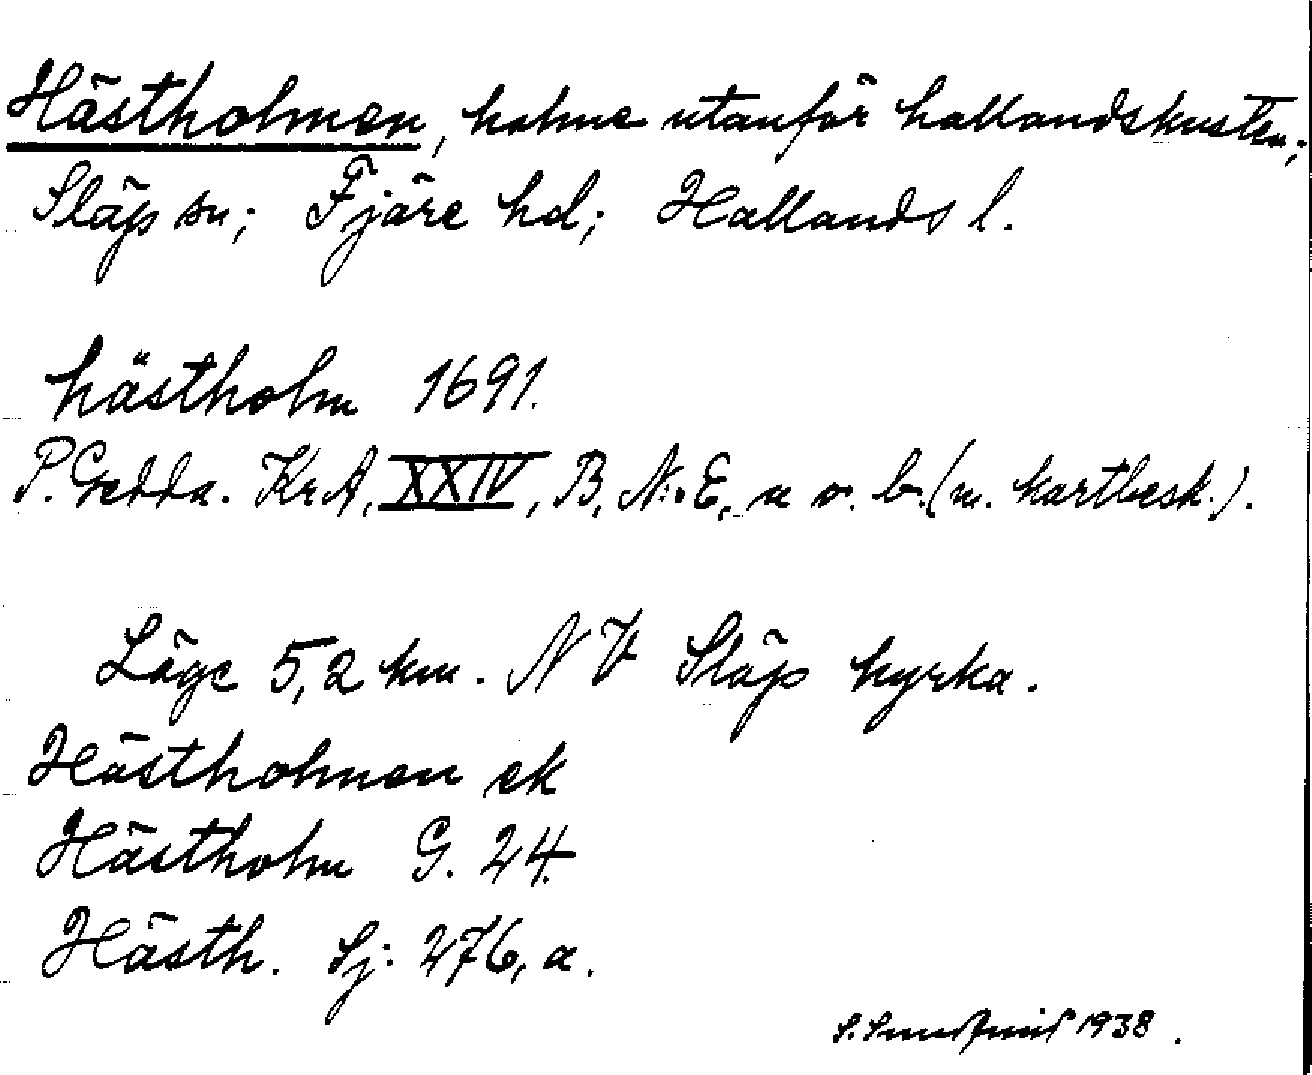 Hästholmen, holme utanför hallandskusten;
Släp sn; Fjäre hd; Hallands l.
hästholm 1691.
P. Gedda. KrA, XXIV, B, N:o E, a o. b. (m. kartbesk.).
Läge 5,2 km. NV Släp kyrka.
Hästholmen ek
Hästholm G. 24.
Hästh. Sj: 276, a.
S. 1938.